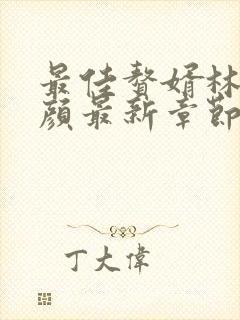 最佳贅婿林
顏最新章節
丁大偉